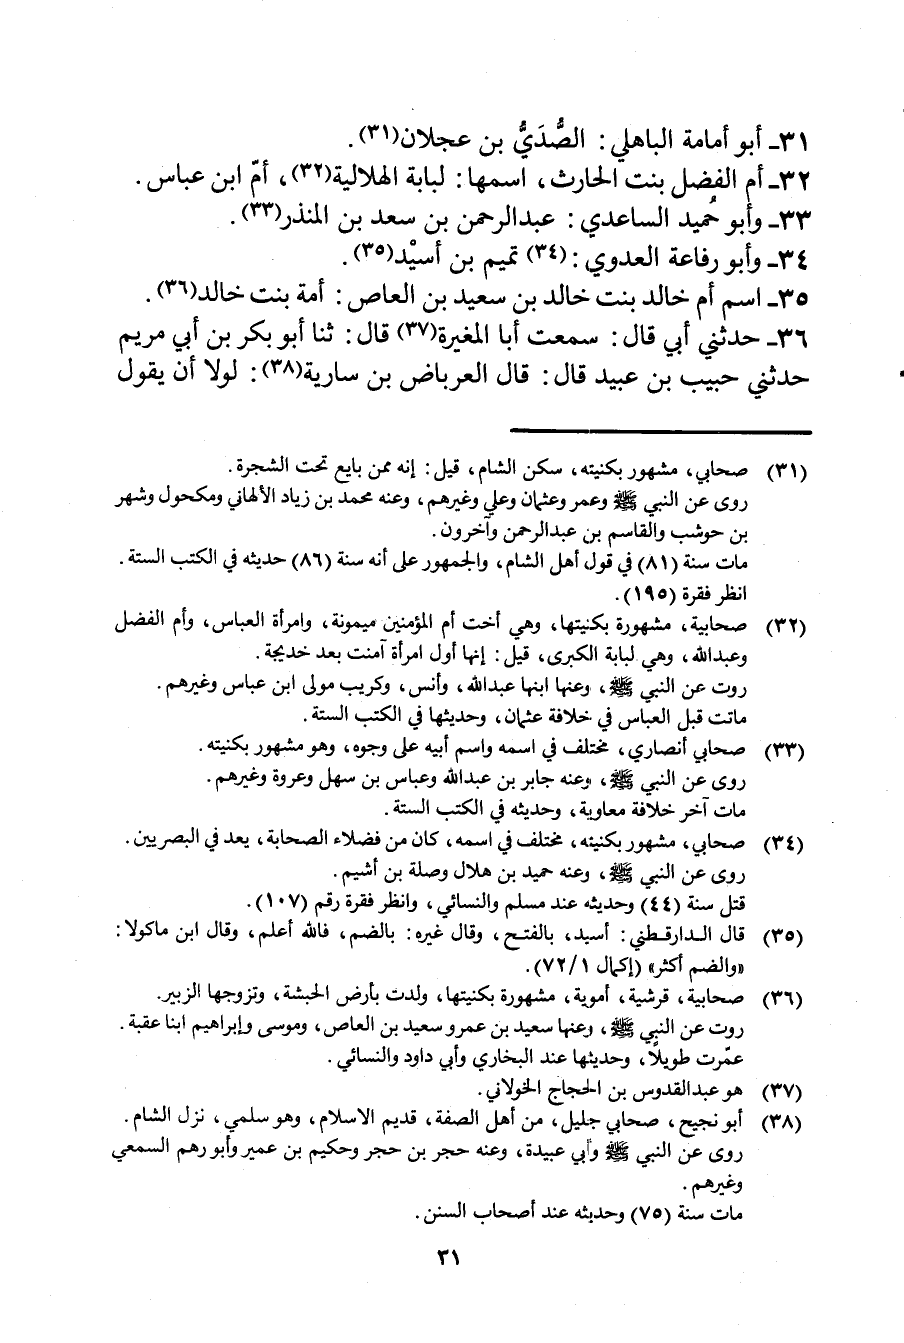 ٣١ـ أبو أمامة الباهلي : الصُّدَيُّ بن عجلان(٣١).
٣٢ـ أم الفضل بنت الحارث، اسمها: لبابة الهلالية(٣٢)، أمّ ابن عباس.
٣٣ـ وأبو حُميد الساعدي : عبدالرحمن بن سعد بن المنذر(٣٣).
٣٤ـ وأبو رفاعة العدوي :(٣٤) تميم بن أسيْد(٣٥).
٣٥ـ اسم أم خالد بنت خالد بن سعيد بن العاص : أمة بنت خالد(٣٦).
٣٦ـ حدثني أبي قال : سمعت أبا المغيرة(٣٧) قال : ثنا أبو بكر بن أبي مريم
حدثني حبيب بن عبيد قال : قال العرباض بن سارية(٣٨): لولا أن يقول
(٣١) صحابي، مشهور بكنيته، سكن الشام، قيل : إنه ممن بايع تحت الشجرة .
روى عن النبي ﷺ وعمر وعثمان وعلي وغيرهم، وعنه محمد بن زياد الألهاني ومكحول وشهر
بن حوشب والقاسم بن عبدالرحمن وآخرون.
مات سنة (٨١) في قول أهل الشام، والجمهور على أنه سنة (٨٦) حديثه في الكتب الستة .
انظر فقرة (١٩٥).
(٣٢) صحابية، مشهورة بكنيتها، وهي أخت أم المؤمنين ميمونة، وامرأة العباس، وأم الفضل
وعبدالله، وهي لبابة الكبرى، قيل : إنها أول امرأة آمنت بعد خديجة .
روت عن النبي ﷺ، وعنها ابنها عبدالله، وأنس، وكريب مولى ابن عباس وغيرهم.
ماتت قبل العباس في خلافة عثمان، وحديثها في الكتب الستة.
(٣٣) صحابي أنصاري، مختلف في اسمه واسم أبيه على وجوه، وهو مشهور بكنيته.
روى عن النبي ﷺ، وعنه جابر بن عبدالله وعباس بن سهل وعروة وغيرهم.
مات آخر خلافة معاوية، وحديثه في الكتب الستة.
(٣٤) صحابي، مشهور بكنيته، مختلف في اسمه، كان من فضلاء الصحابة، يعد في البصريين.
روى عن النبي ﷺ، وعنه حميد بن هلال وصلة بن أشيم.
قتل سنة (٤٤) وحديثه عند مسلم والنسائي، وانظر فقرة رقم (١٠٧).
(٣٥) قال الدارقطني : أسيد، بالفتح، وقال غيره: بالضم، فالله أعلم، وقال ابن ماكولا:
«والضم أكثر» (إكمال ٧٢/١).
(٣٦) صحابية، قرشية، أموية، مشهورة بكنيتها، ولدت بأرض الحبشة، وتزوجها الزبير.
روت عن النبي ﷺ، وعنها سعيد بن عمرو سعيد بن العاص، وموسى وإبراهيم ابنا عقبة.
عمّرت طويلًا، وحديثها عند البخاري وأبي داود والنسائي.
(٣٧) هو عبدالقدوس بن الحجاج الخولاني.
(٣٨) أبو نجيح، صحابي جليل، من أهل الصفة، قديم الاسلام، وهو سلمي، نزل الشام.
روى عن النبي ﷺ وأبي عبيدة، وعنه حجر بن حجر وحكيم بن عمير وأبو رهم السمعي
وغيرهم.
مات سنة (٧٥) وحديثه عند أصحاب السنن.
٣١